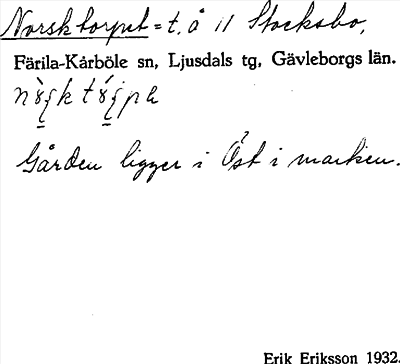 Norsktorpet = t. å 11 Stocksbo,
Färila-Kårböle sn, Ljusdals tg, Gävleborgs län.
Gården ligger i Öst i marken.
Erik Eriksson 1932.